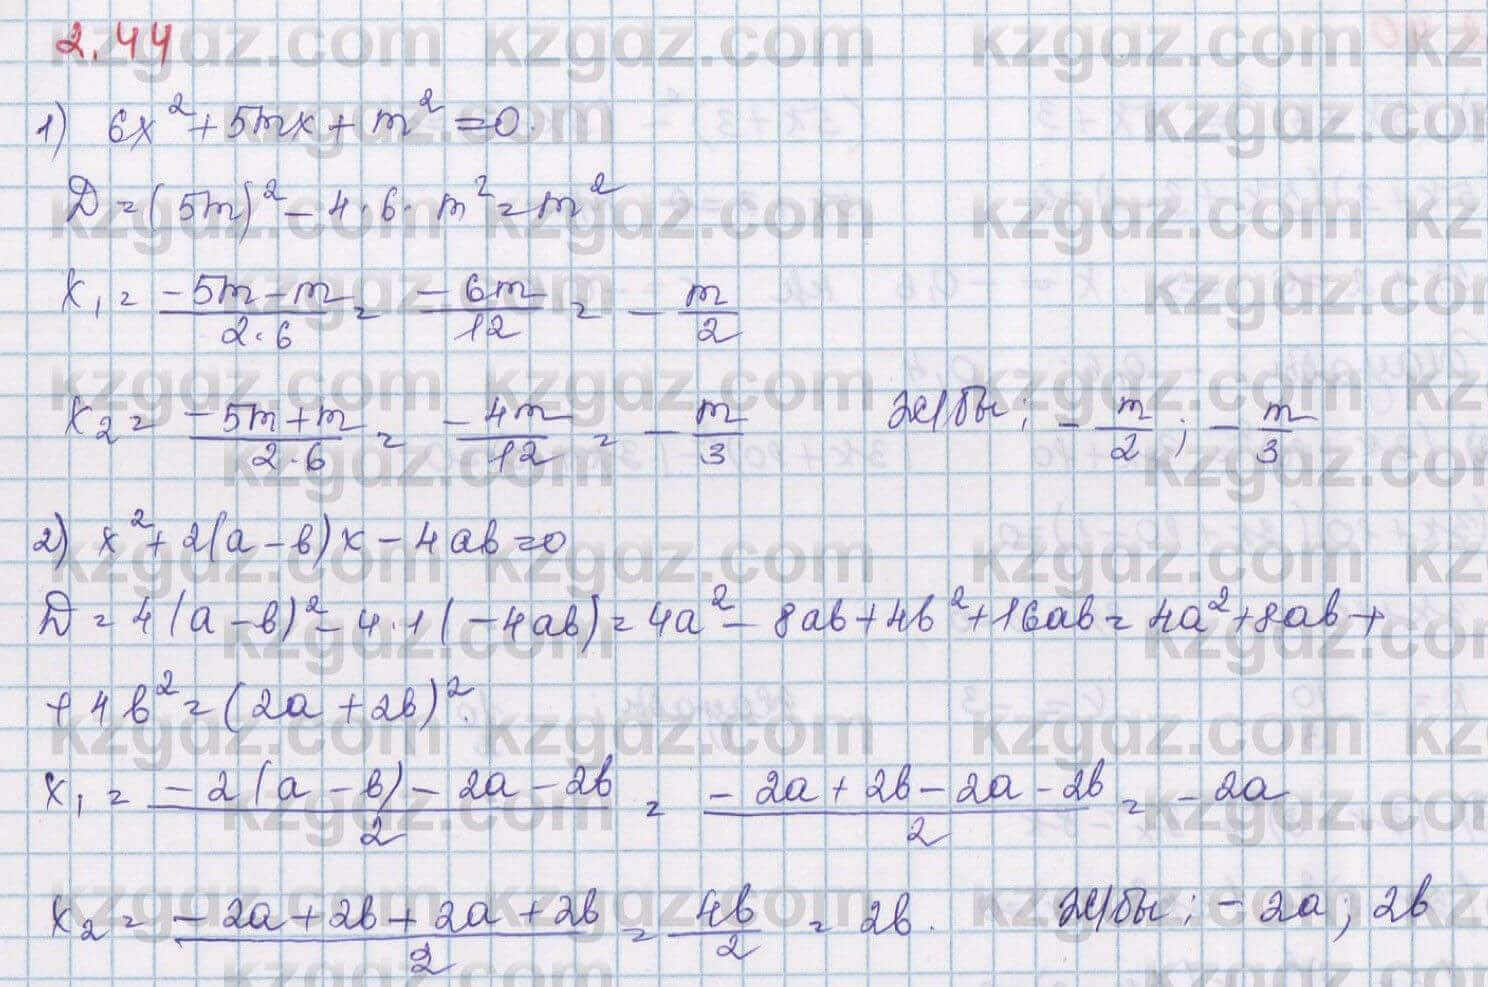 2.44
1) 6x² + 5mx + m² = 0.
D = (5m)² - 4·6·m² = m²
x₁ = (-5m - m)/(2·6) = (-6m)/12 = -m/2
x₂ = (-5m + m)/(2·6) = (-4m)/12 = -m/3 Ж/бы: -m/2; -m/3
2) x² + 2(a - b)x - 4ab = 0
D = 4(a - b)² - 4·1(-4ab) = 4a² - 8ab + 4b² + 16ab = 4a² + 8ab +
+ 4b² = (2a + 2b)².
x₁ = (-2(a - b) - 2a - 2b)/2 = (-2a + 2b - 2a - 2b)/2 = -2a
x₂ = (-2a + 2b + 2a + 2b)/2 = 4b/2 = 2b. Ж/бы: -2a; 2b
kzgdz.com